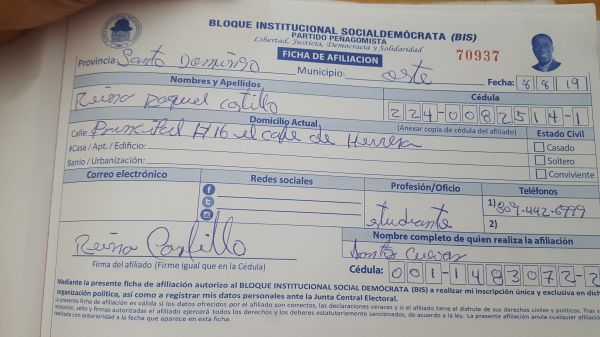 BLOQUE INSTITUCIONAL SOCIALDEMÓCRATA (BIS)
PARTIDO PEÑAGOMISTA
Libertad, Justicia, Democracia y Solidaridad
70937
FICHA DE AFILIACION
Provincia: Santo Domingo Municipio: oeste Fecha: 8 8 19
Nombres y Apellidos Cédula
Reina Raquel Castillo 224-0082514-1
Domicilio Actual (Anexar copia de cédula del afiliado) Estado Civil
Calle: Principal #16 el cafe de Herrera
Casado
#Casa / Apt. / Edificio: Soltero
Barrio / Urbanización: Conviviente
Correo electrónico Redes sociales Profesión/Oficio Teléfonos
1) 809-442-6999
estudiante 2)
Nombre completo de quien realiza la afiliación
Reina Castillo Santos Cuevas
Firma del afiliado (Firme igual que en la Cédula) Cédula: 001-1483072-2
Mediante la presente ficha de afiliación autorizo al BLOQUE INSTITUCIONAL SOCIAL DEMÓCRATA (BIS) a realizar mi inscripción única y exclusiva en dich
organización política, así como a registrar mis datos personales ante la Junta Central Electoral.
la presente ficha de afiliación es válida si los datos ofrecidos por el afiliado son correctos, las declaraciones veraces y si el afiliado tiene el disfrute de sus derechos civiles y políticos. Tras s
recepción, sello y firmas autorizadas el afiliado ejercerá todos los derechos y los deberes estatutariamente sancionados, de acuerdo a la ley. La presente afiliación anula cualquier afiliación
realizada con anterioridad a la fecha que aparece en esta ficha.